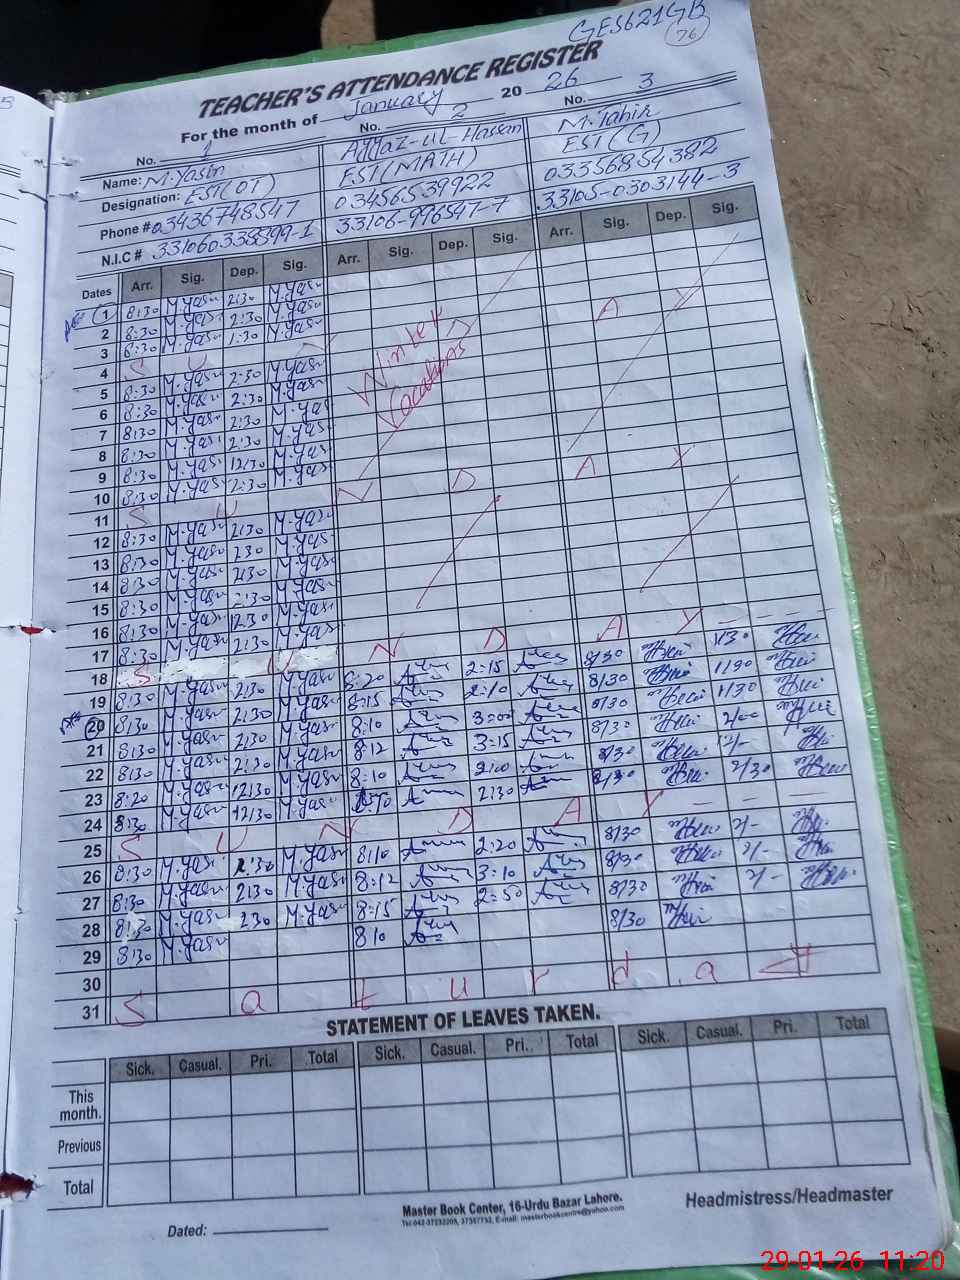 GES621GB
76
TEACHER'S ATTENDANCE REGISTER
For the month of January 20 26
No. 1 No. 2 No. 3
Name: M.Yasin Aijaz-ul-Hassan M.Tahir
Designation: EST(OT) EST(MATH) EST(G)
Phone # 03436748547 03456539922 03356854382
N.I.C # 331060338899-1 33106-996547-7 33105-0303144-3
Dates Arr. Sig. Dep. Sig. Arr. Sig. Dep. Sig. Arr. Sig. Dep. Sig.
1 8:30 M.Yasin 2:30 M.Yasin
2 8:30 M.Yasin 2:30 M.Yasin
3 8:30 M.Yasin 1:30 M.Yasin
4 S U N D A Y
Winter Vacations
5 8:30 M.Yasin 2:30 M.Yasin
6 8:30 M.Yasin 2:30 M.Yasin
7 8:30 M.Yasin 2:30 M.Yasin
8 8:30 M.Yasin 2:30 M.Yasin
9 8:30 M.Yasin 12:30 M.Yasin
10 8:30 M.Yasin 2:30 M.Yasin
11 S U N D A Y
12 8:30 M.Yasin 2:30 M.Yasin
13 8:30 M.Yasin 2:30 M.Yasin
14 8:30 M.Yasin 2:30 M.Yasin
15 8:30 M.Yasin 2:30 M.Yasin
16 8:30 M.Yasin 12:30 M.Yasin
17 8:30 M.Yasin 2:30 M.Yasin
18 S U N D A Y
19 8:30 M.Yasin 2:30 M.Yasin 8:20 2:15 8/30 1/30
20 8:30 M.Yasin 2:30 M.Yasin 8:15 2:10 8/30 1/30
21 8:30 M.Yasin 2:30 M.Yasin 8:10 3:00 8/30 1/30
22 8:30 M.Yasin 2:30 M.Yasin 8:12 3:15 8/30 2/00
23 8:20 M.Yasin 12:30 M.Yasin 8:10 2:00 8/30 2/-
24 8:30 M.Yasin 12:30 M.Yasin 8:10 2:30 8/30 2/30
25 S U N D A Y
26 8:30 M.Yasin 2:30 M.Yasin 8:10 2:20 8/30 2/-
27 8:30 M.Yasin 2:30 M.Yasin 8:12 3:10 8/30 2/-
28 8:30 M.Yasin 2:30 M.Yasin 8:15 2:50 8/30 2/-
29 8:30 M.Yasin 8:10 8/30
30
31 S a t u r d a y
STATEMENT OF LEAVES TAKEN.
Sick. Casual. Pri. Total Sick. Casual. Pri. Total Sick. Casual. Pri. Total
This month.
Previous
Total
Master Book Center, 16-Urdu Bazar Lahore.
Headmistress/Headmaster
Dated:
29-01-26 11:20